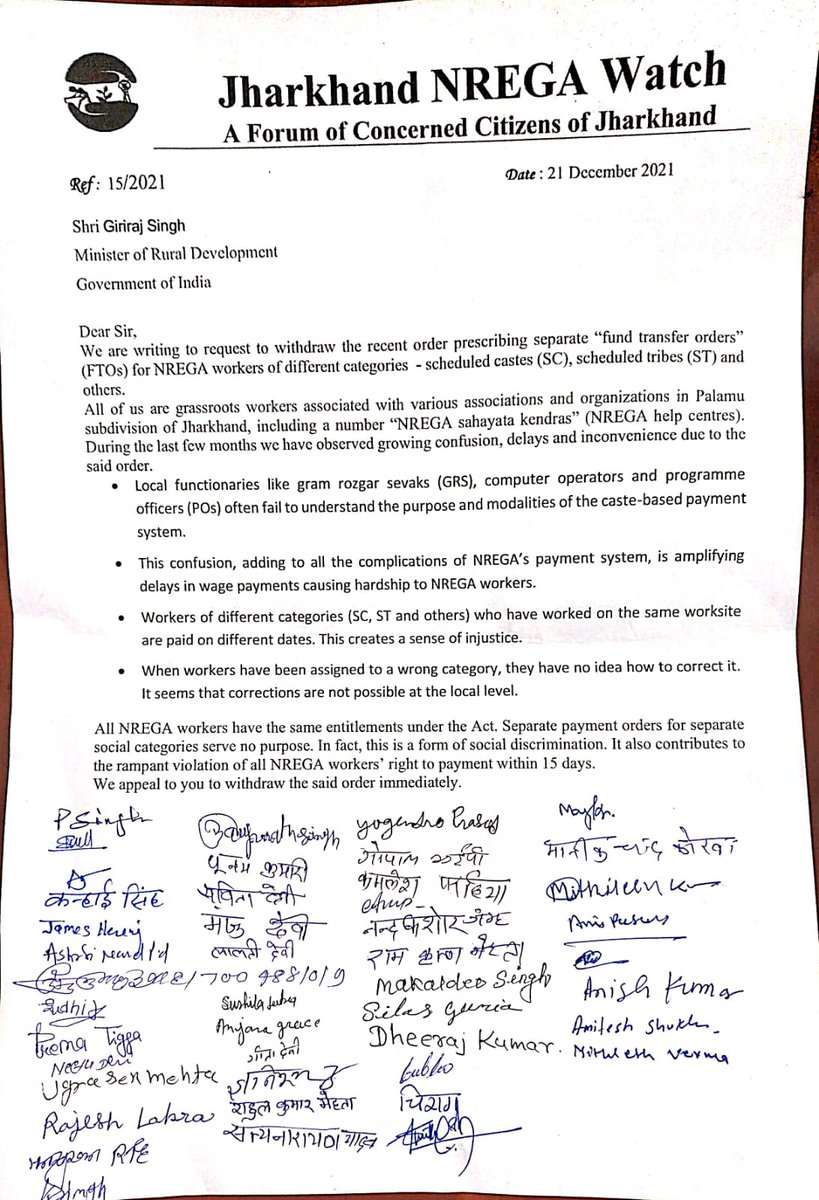 Jharkhand NREGA Watch
A Forum of Concerned Citizens of Jharkhand
Ref: 15/2021
Date : 21 December 2021
Shri Giriraj Singh
Minister of Rural Development
Government of India
Dear Sir,
We are writing to request to withdraw the recent order prescribing separate “fund transfer orders”
(FTOs) for NREGA workers of different categories - scheduled castes (SC), scheduled tribes (ST) and
others.
All of us are grassroots workers associated with various associations and organizations in Palamu
subdivision of Jharkhand, including a number “NREGA sahayata kendras” (NREGA help centres).
During the last few months we have observed growing confusion, delays and inconvenience due to the
said order.
• Local functionaries like gram rozgar sevaks (GRS), computer operators and programme
officers (POs) often fail to understand the purpose and modalities of the caste-based payment
system.
• This confusion, adding to all the complications of NREGA’s payment system, is amplifying
delays in wage payments causing hardship to NREGA workers.
• Workers of different categories (SC, ST and others) who have worked on the same worksite
are paid on different dates. This creates a sense of injustice.
• When workers have been assigned to a wrong category, they have no idea how to correct it.
It seems that corrections are not possible at the local level.
All NREGA workers have the same entitlements under the Act. Separate payment orders for separate
social categories serve no purpose. In fact, this is a form of social discrimination. It also contributes to
the rampant violation of all NREGA workers’ right to payment within 15 days.
We appeal to you to withdraw the said order immediately.
P Singh
कन्हाई सिंह
James
Sudhir
Prema Tigga
Ugrasen mehta
Rajesh Lakra
पूनम कुमारी
सविता देवी
मंजू देवी
लालती देवी
Sushila
Anjana grace
गीता देवी
राहुल कुमार मेहता
सत्यनारायण यादव
yogendra Prasad
गोपाल
कमलेश
नन्द किशोर
राम
Mahadeo Singh
Silas Guria
Dheeraj Kumar.
चिराग
Anish Kumar
Anitesh Shukla
Mithlesh verma